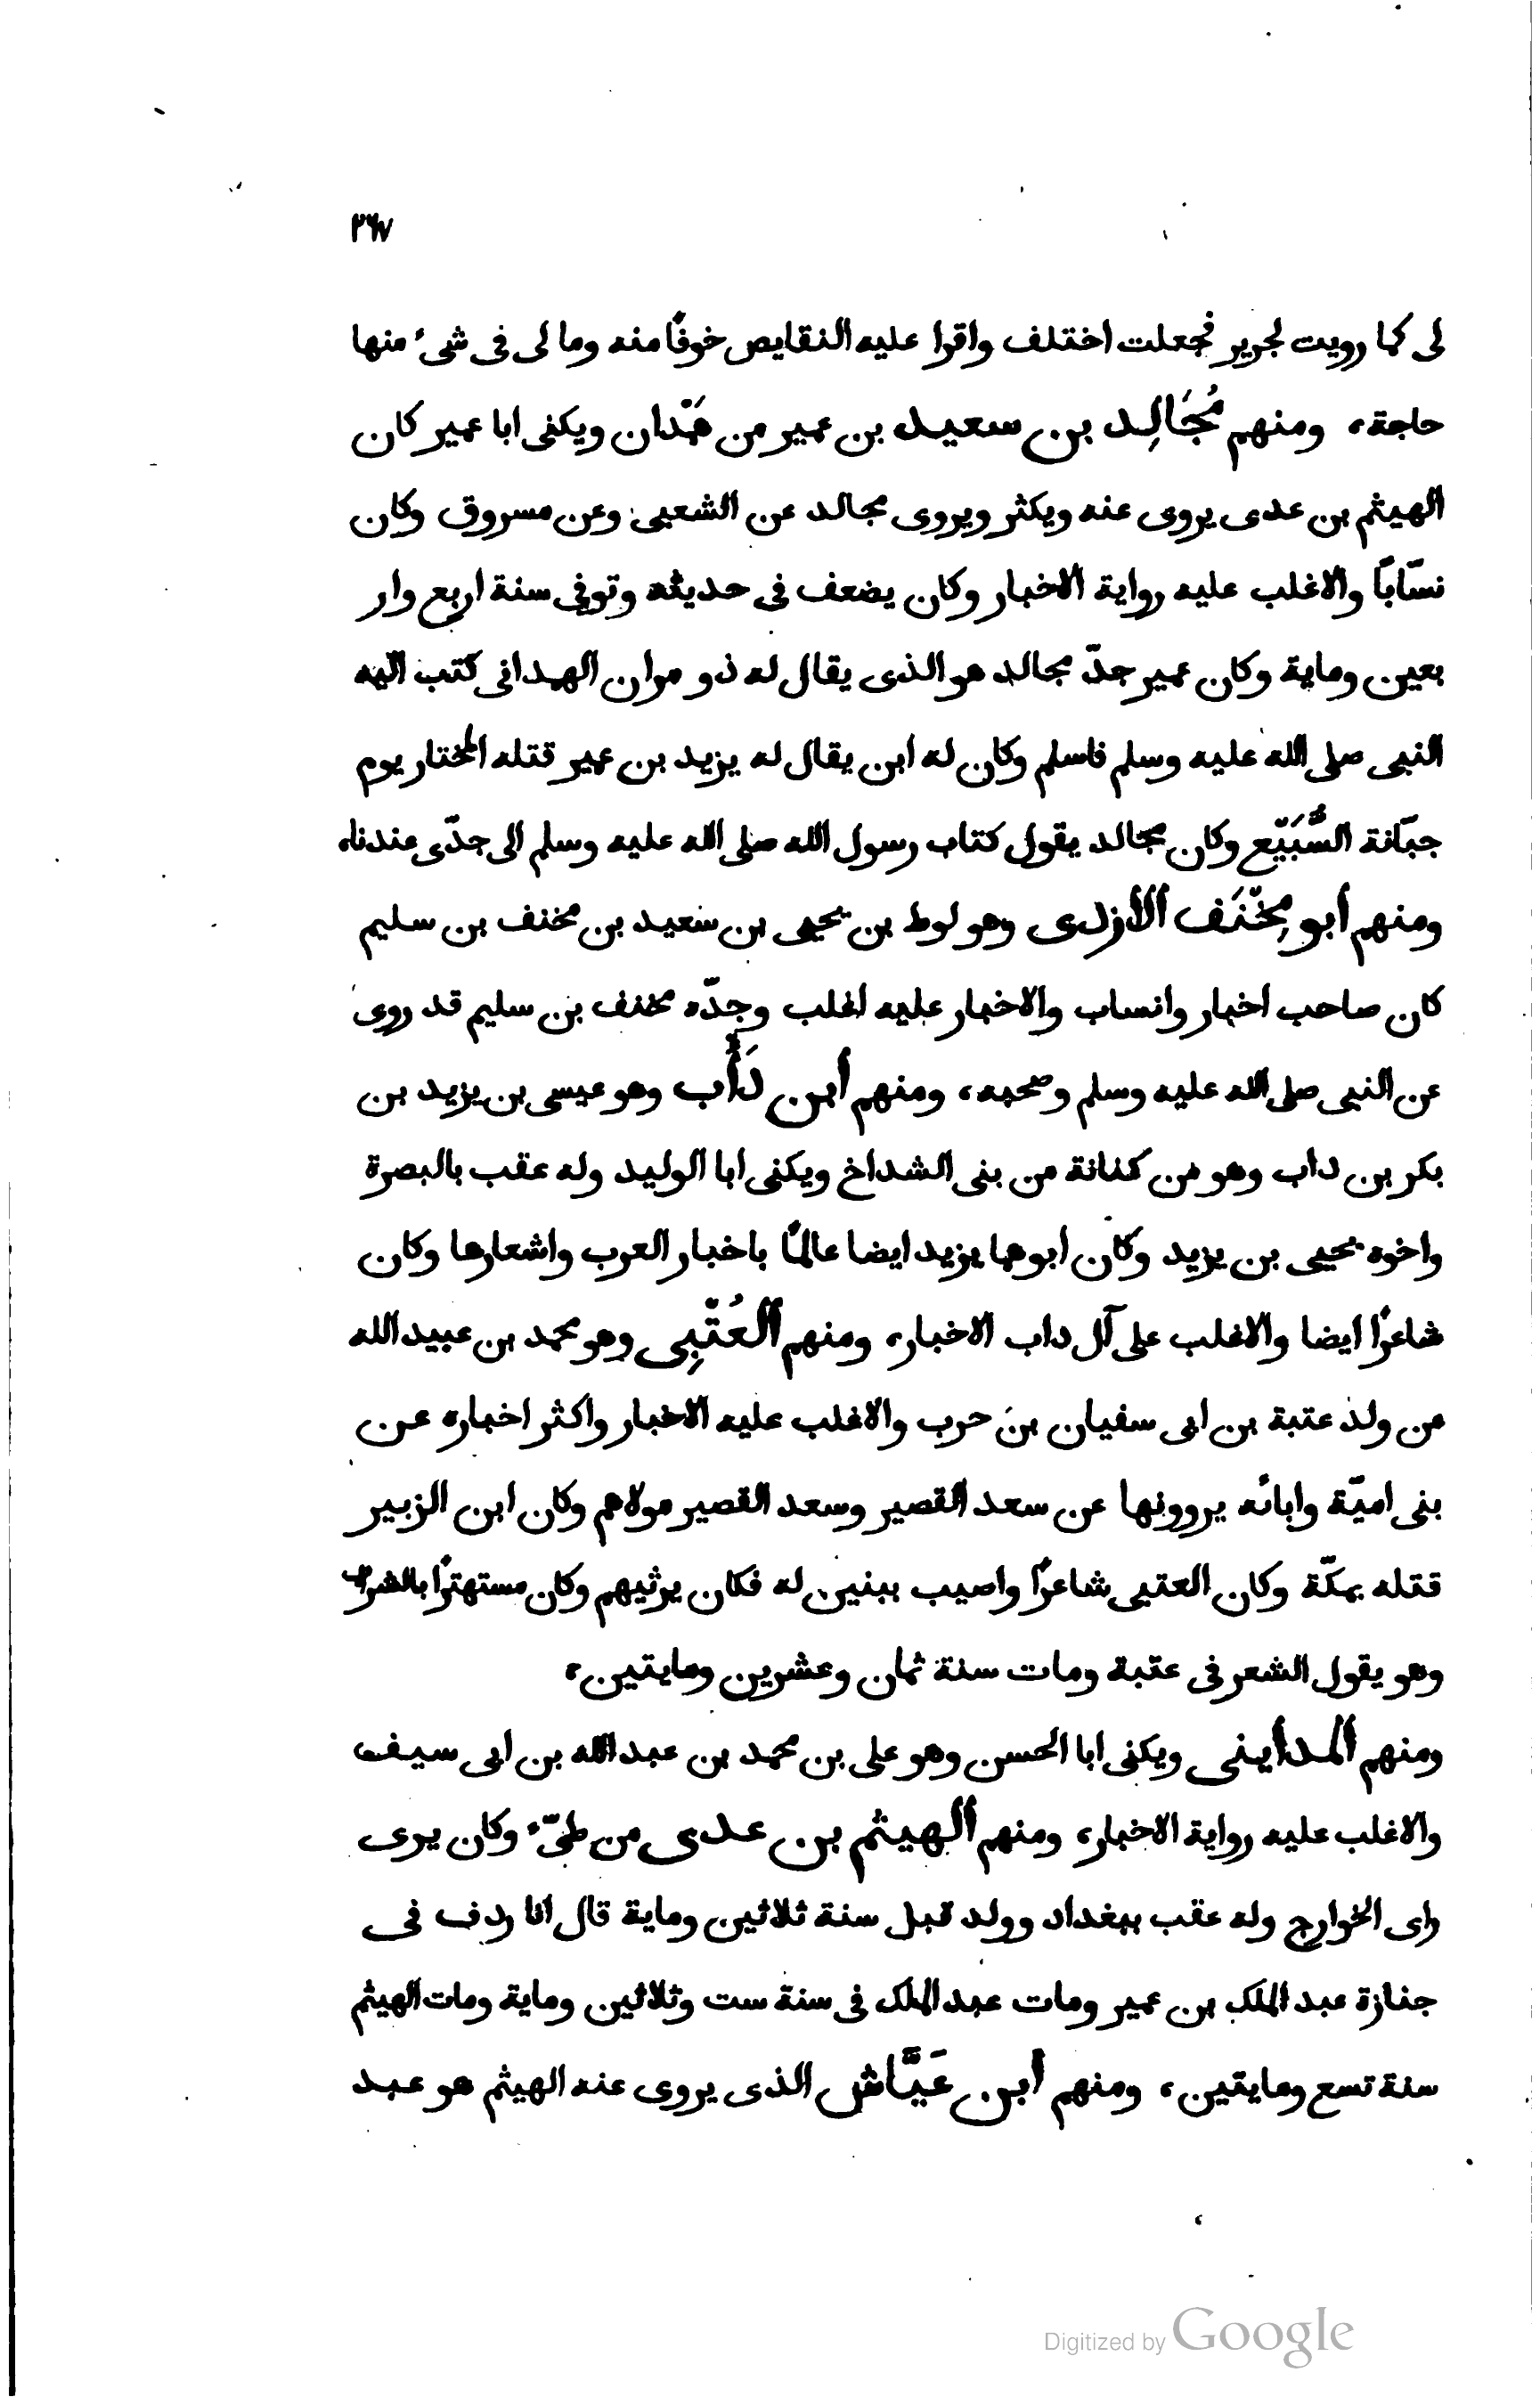 ٢٦٧
لى كما رويت لجرير فجعلت اختلف واقرا عليه النقايص خوفًا منه وما لى فى شىء منها
حاجة، ومنهم مُجَالِد بن سعيد بن عمير من هَمْدان ويكنى ابا عمير كان
الهيثم بن عدى يروى عنه ويكثر ويروى مجالد عن الشعبى وعن مسروق وكان
نسّابًا والاغلب عليه رواية الاخبار وكان يضعف فى حديثه وتوفى سنة اربع وار
بعين وماية وكان عمير جدّ مجالد هو الذى يقال له ذو مران الهمدانى كتب اليه
النبى صلى الله عليه وسلم فاسلم وكان له ابن يقال له يزيد بن عمير قتله المختار يوم
جبّانة السُّبَيّع وكان مجالد يقول كتاب رسول الله صلى الله عليه وسلم الى جدّى عندنا،
ومنهم أبو مِخْنَف الأزدى وهو لوط بن يحيى بن سعيد بن مخنف بن سليم
كان صاحب اخبار وانساب والاخبار عليه اغلب وجدّه مخنف بن سليم قد روى
عن النبى صلى الله عليه وسلم وصحبه، ومنهم أبن دَأْب وهو عيسى بن يزيد بن
بكر بن داب وهو من كنانة من بنى الشداخ ويكنى ابا الوليد وله عقب بالبصرة
واخوه يحيى بن يزيد وكان ابوهما يزيد ايضا عالمًا باخبار العرب واشعارها وكان
شاعرًا ايضا والاغلب على آل داب الاخبار، ومنهم ألعُتْبِى وهو محمد بن عبيد الله
من ولد عتبة بن ابى سفيان بن حرب والاغلب عليه الاخبار واكثر اخباره عن
بنى اميّة وابائه يروونها عن سعد القصير وسعد القصير مولاهم وكان ابن الزبير
قتله بمكّة وكان العتبى شاعرًا واصيب ببنين له فكان يرثيهم وكان مستهترًا بالشراب
وهو يقول الشعر فى عتبة ومات سنة ثمان وعشرين ومايتين،
ومنهم ألمدأينى ويكنى ابا الحسن وهو على بن محمد بن عبد الله بن ابى سيف
والاغلب عليه رواية الاخبار، ومنهم ألهيثم بن عدى من طىّء وكان يرى
راى الخوارج وله عقب ببغداد وولد قبل سنة ثلاثين وماية قال انا ردف فى
جنازة عبد الملك بن عمير ومات عبد الملك فى سنة ست وثلاثين وماية ومات الهيثم
سنة تسع ومايتين، ومنهم أبن عَيَّاش الذى يروى عنه الهيثم هو عبد
Digitized by Google